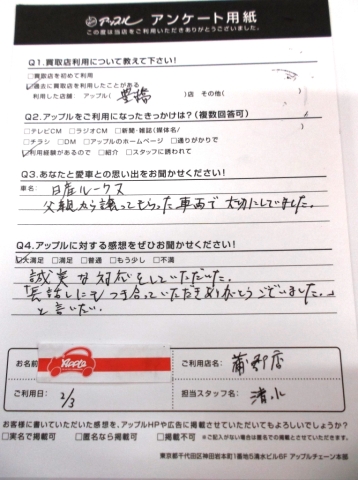 アップル アンケート用紙
この度は当店をご利用いただきありがとうございました。
Q1.買取店利用について教えて下さい!
□買取店を初めて利用
□過去に買取店を利用したことがある
利用した店舗 アップル( 豊橋 )店 その他( )
Q2.アップルをご利用になったきっかけは?(複数回答可)
□テレビCM □ラジオCM □新聞・雑誌(媒体名/ )
□チラシ □DM □アップルのホームページ □通りがかりで
□利用経験があるので □紹介 □スタッフに誘われて
Q3.あなたと愛車との思い出をお聞かせください!
車名: 日産ルークス
父親から譲ってもらった車両で大切にしていました。
Q4.アップルに対する感想をぜひお聞かせください!
□大満足 □満足 □普通 □もう少し □不満
誠実な対応をしていただいた。
「長話しにもつき合っていただきありがとうございました。」
と言いたい。
お名前 Apple ご利用店名: 蒲郡店
ご利用日: 2/3 担当スタッフ名: 清水
お客様に書いていただいた感想を、アップルHPや広告に掲載させていただいてもよろしいでしょうか?
□実名で掲載可 □匿名なら掲載可 □掲載不可 ※ご記入がない場合は匿名での掲載とさせていただきます。
東京都千代田区神田岩本町1番地5清水ビル6F アップルチェーン本部